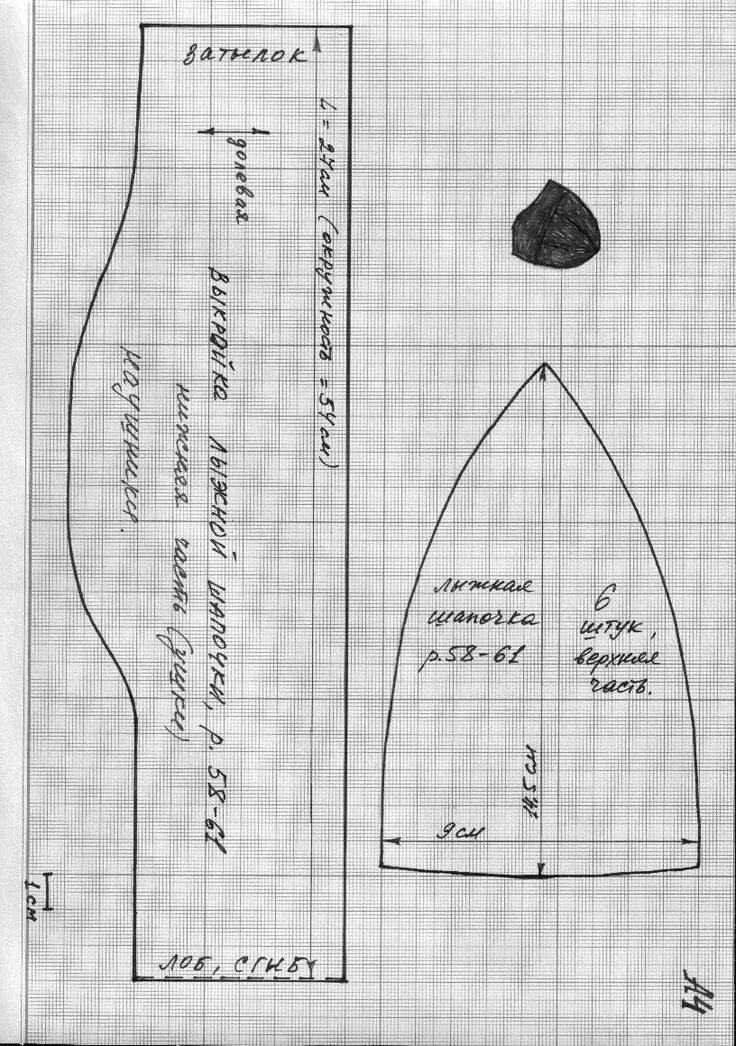 затылок
L = 27см (окружность = 54см)
долевая
выкройка лыжной шапочки, р. 58-61
нижняя часть (ушки)
наушники.
лоб, сгиб
1 см
лыжная
шапочка
р.58-61
6
штук,
верхняя
часть.
14,5см
9см
А4